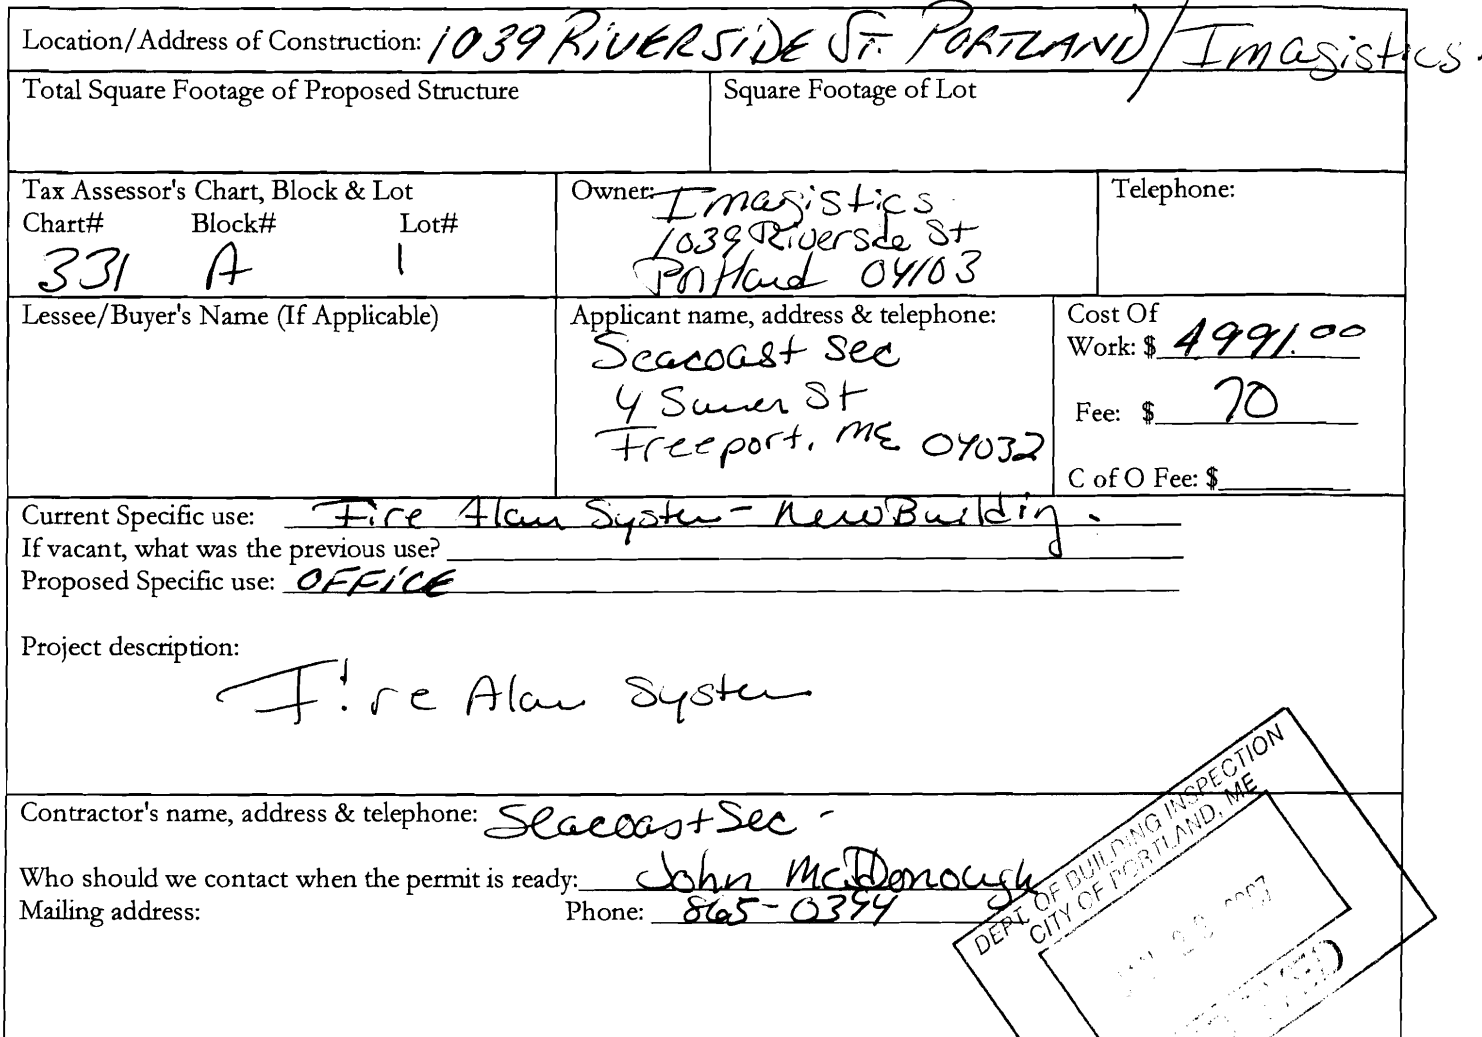 Location/Address of Construction: 1039 RIVERSIDE ST. PORTLAND/Imagistics.
Total Square Footage of Proposed Structure
Square Footage of Lot
Tax Assessor's Chart, Block & Lot
Chart# Block# Lot#
331 A 1
Owner: Imagistics.
1039 Riverside St
Portland 04103
Telephone:
Lessee/Buyer's Name (If Applicable)
Applicant name, address & telephone:
Seacoast Sec
4 St
Freeport, ME 04032
Cost Of
Work: $ 4991.00
Fee: $ 70
C of O Fee: $
Current Specific use: Fire Alarm System - New Building.
If vacant, what was the previous use?
Proposed Specific use: OFFICE
Project description:
Fire Alarm System
Contractor's name, address & telephone: Seacoast Sec -
Who should we contact when the permit is ready: John McDonough
Mailing address:
Phone: 865-0394
DEPT. OF BUILDING INSPECTION
CITY OF PORTLAND, ME